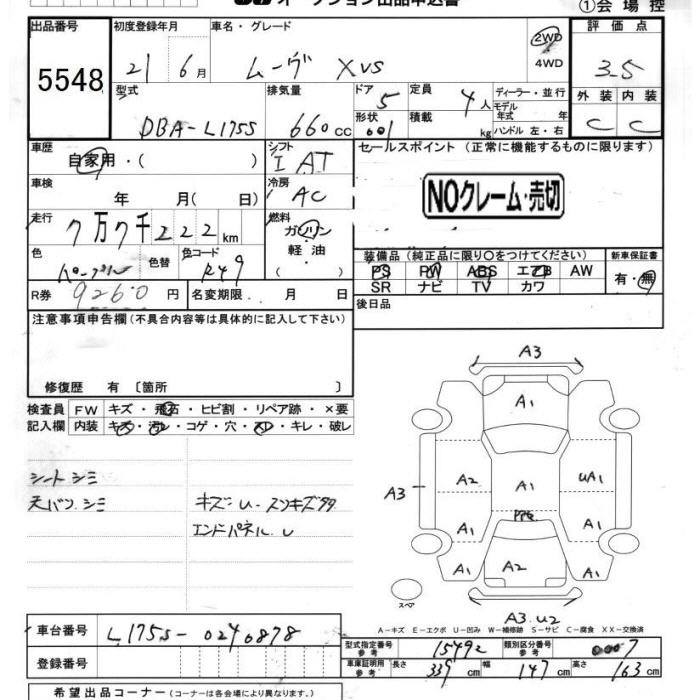 オークション出品申込書
①会場控
出品番号
5548
初度登録年月
21 6月
車名・グレード
ムーヴ XVS
2WD
4WD
評価点
3.5
外装 内装
C C
型式
DBA-L175S
排気量
660cc
ドア
5
形状
601
定員
4人
積載
kg
ディーラー・並行
モデル
年式 年
ハンドル 左・右
車歴
自家用・( )
シフト
I AT
セールスポイント (正常に機能するものに限ります)
NOクレーム・売切
車検
年 月(日)
冷房
AC
走行
7万7千222km
燃料
ガソリン
軽油
( )
色
パープル
色替
色コード
R49
装備品(純正品に限り〇をつけてください)
PS PW ABS エアB AW
SR ナビ TV カワ
新車保証書
有・無
R券
9260円
名変期限 月 日
後日品
注意事項申告欄(不具合内容等は具体的に記入して下さい)
修復歴 有〔箇所 〕
検査員
記入欄
FW キズ・飛石・ヒビ割・リペア跡・×要
内装 キズ・汚レ・コゲ・穴・スレ・キレ・破レ
シートシミ
天バリ シミ
キズ・U・スリキズ多
エンドパネル U
A3
A1
A3
A2
A1
UA1
A1
A1
A1
A2
A1
スペア
A3.U2
A-キズ E-エクボ U-凹み W-補修跡 S-サビ C-腐食 XX-交換済
車台番号
L175S-0246878
登録番号
型式指定番号
参考
15492
類別区分番号
参考
0007
車庫証明用
参考
長さ
339cm
幅
147cm
高さ
163cm
希望出品コーナー(コーナーは各会場により異なります)